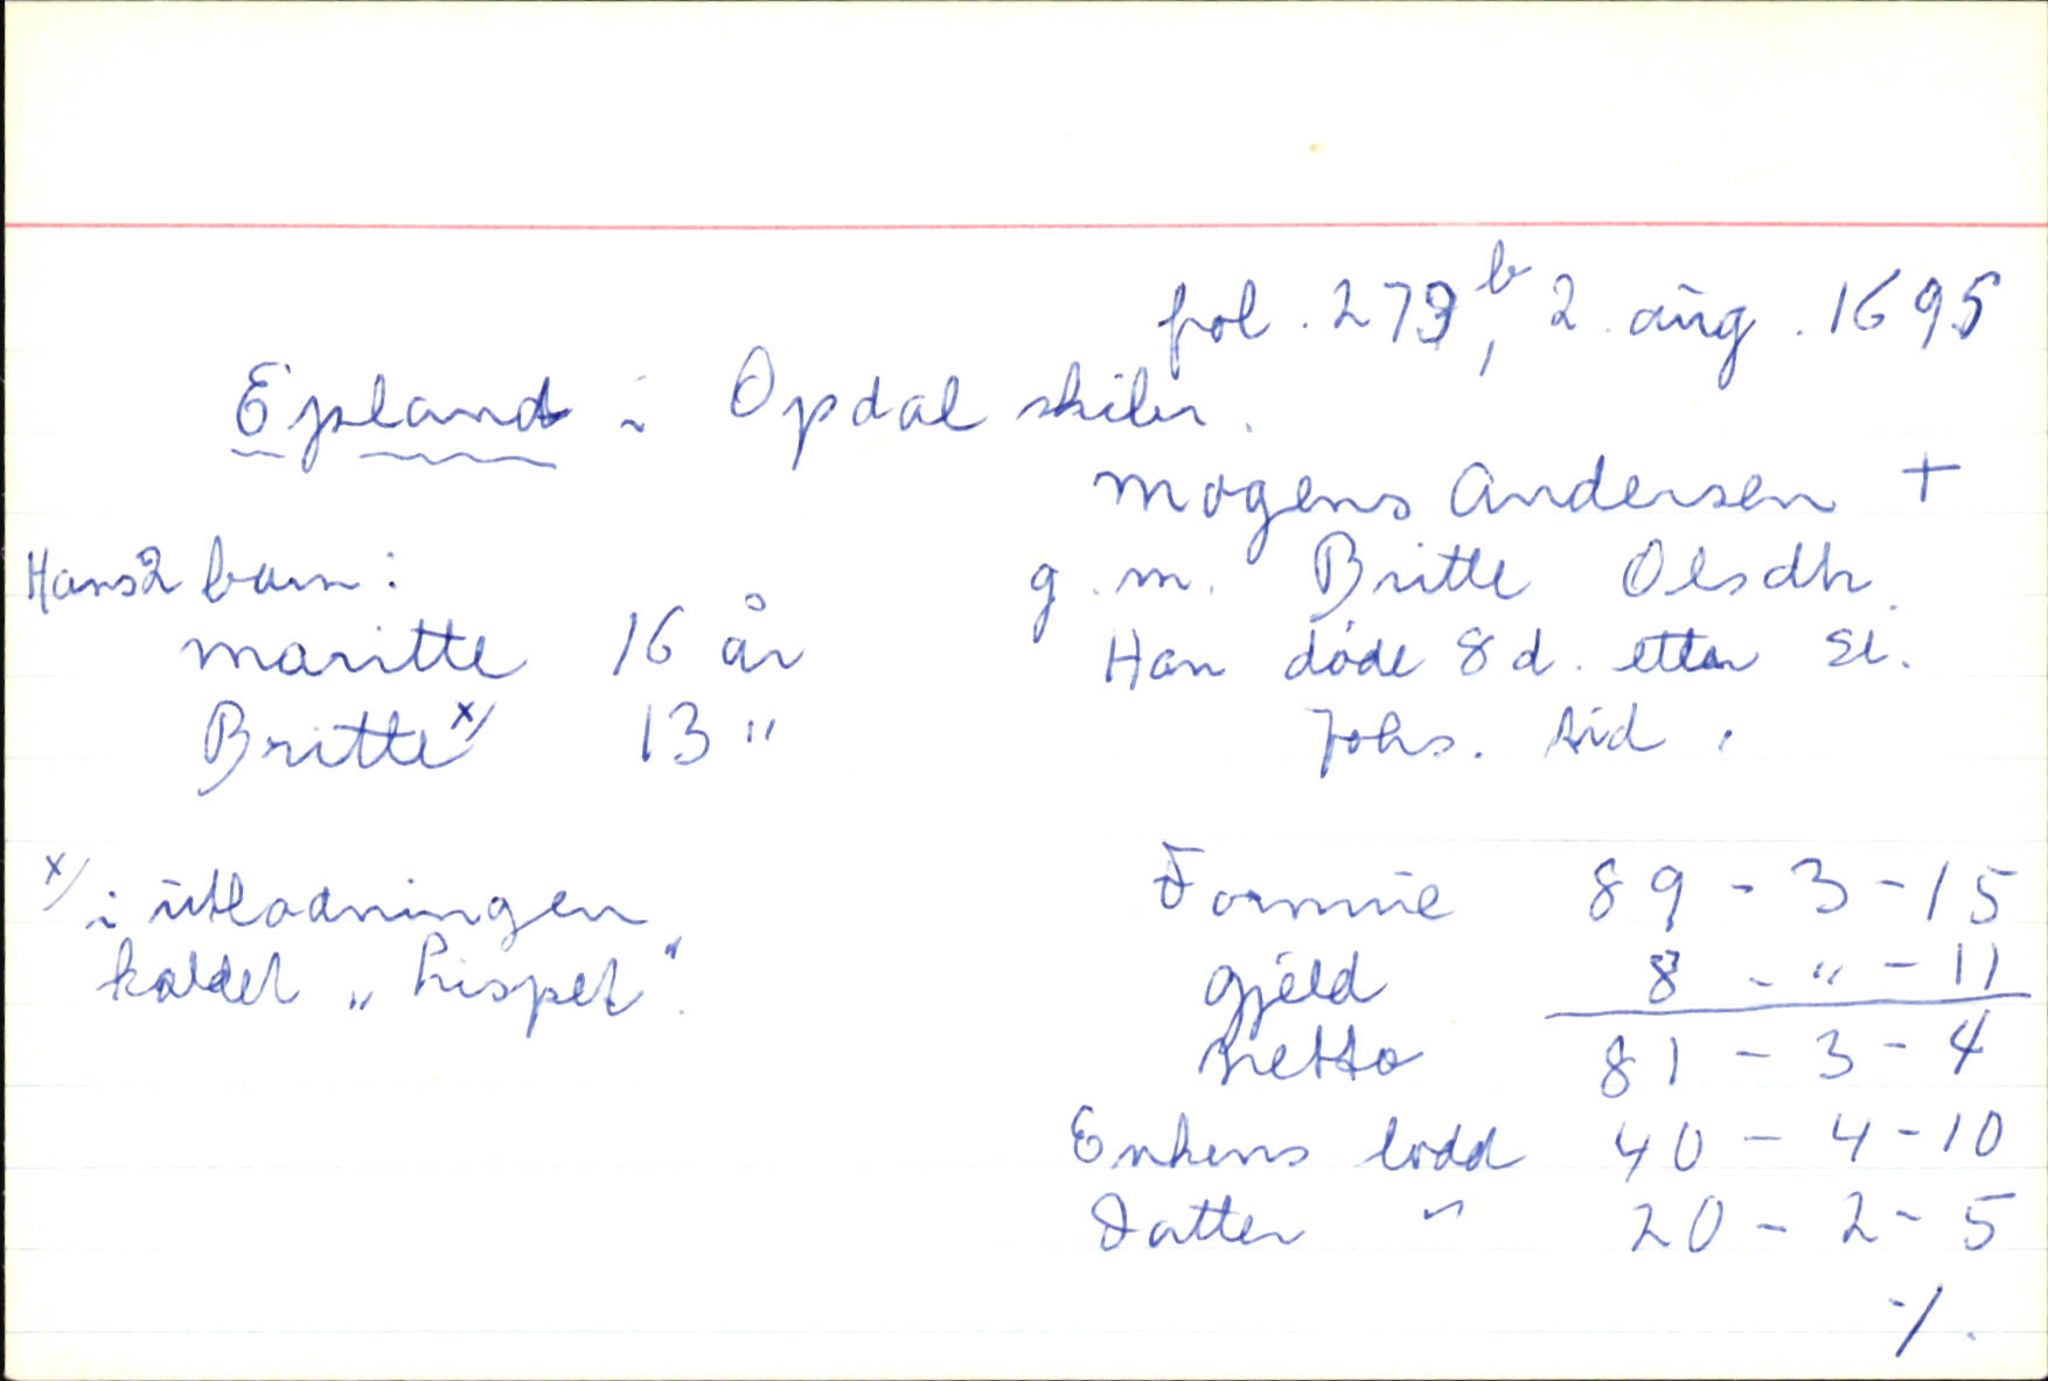 fol. 279b, 2. aug. 1695
Epland i Opdal skibr.
Mogens Andersen +
g. m. Britte Olsdtr.
Han døde 8 d. etter St.
Johs. tid.
Hans 2 barn:
Maritte 16 år
Britte x/ 13 "
x/ i utlodningen
kaldet „Lispet".
Formue 89 - 3 - 15
Gjeld 8 - " - 11
Netto 81 - 3 - 4
Enkens lodd 40 - 4 - 10
Datter " 20 - 2 - 5
·/.